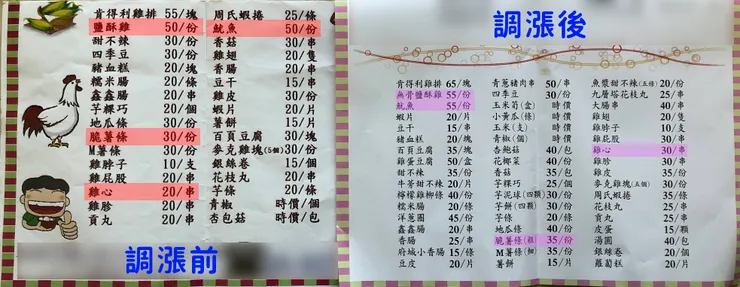 肯得利雞排 55/塊
鹽酥雞 50/份
甜不辣 30/份
四季豆 30/份
豬血糕 20/塊
糯米腸 20/條
鑫鑫腸 20/串
芋粿巧 20/個
地瓜條 30/份
脆薯條 30/份
M薯條 30/份
雞脖子 10/支
雞屁股 20/串
雞心 20/串
雞胗 20/串
貢丸 20/串
周氏蝦捲 25/條
魷魚 50/份
香菇 30/串
雞翅 20/隻
香腸 20/串
豆干 15/串
雞皮 30/份
蝦片 20/片
薯餅 15/片
百頁豆腐 30/塊
麥克雞塊(5個) 30/份
銀絲卷 15/個
花枝丸 20/串
芋條 20/條
青椒 時價/個
杏包菇 時價/包
調漲前
調漲後
肯得利雞排 65/塊
無骨鹽酥雞 55/份
魷魚 55/份
蝦片 20/片
豆干 15/串
豬血糕 20/塊
百頁豆腐 35/塊
雞蛋豆腐 50/盒
甜不辣 35/份
牛蒡甜不辣 20/片
檸檬雞柳條 40/份
糯米腸 20/條
洋蔥圈 45/份
鑫鑫腸 25/串
香腸 25/串
府城小香腸 15/條
豆皮 20/片
青蔥豬肉串 50/串
四季豆 30/份
玉米筍(盒) 時價
小黃瓜(條) 時價
玉米(支) 時價
青椒(個) 時價
杏鮑菇 40/包
花椰菜 40/份
香菇 35/串
芋粿巧 25/個
芋泥球(四顆) 30/份
芋餅(四個) 30/份
芋條 20/條
地瓜條 40/份
脆薯條(粗) 35/份
M薯條(細) 35/份
薯餅 15/片
魚漿甜不辣(五條) 20/份
九層塔花枝丸 25/串
大腸串 40/串
雞翅 20/隻
雞脖子 10/支
雞屁股 30/串
雞心 30/串
雞胗 30/串
雞皮 35/份
麥克雞塊(五個) 30/份
周氏蝦捲 35/條
花枝丸 25/串
貢丸 20/串
皮蛋 15/顆
湯圓 40/包
銀絲卷 20/個
蘿蔔糕 20/片